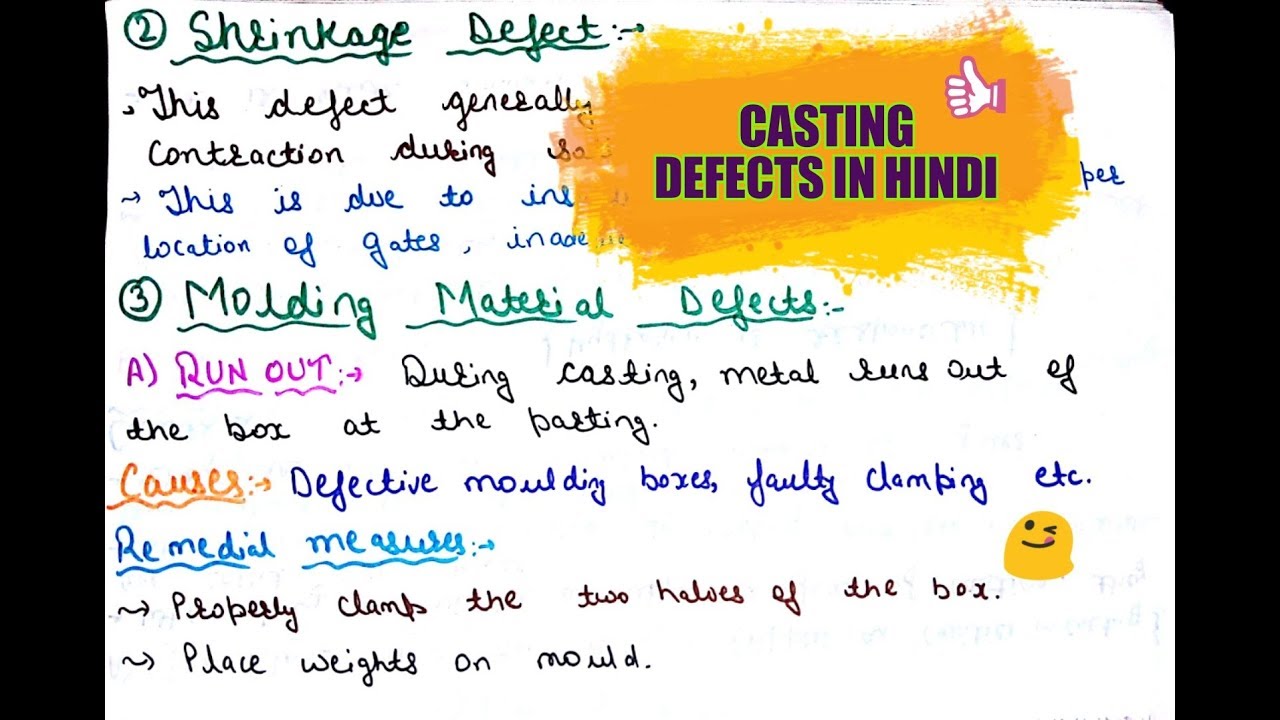 ② Shrinkage Defect:→
CASTING
DEFECTS IN HINDI
→ This defect generally
contraction during
→ This is due to
location of gates,
③ Molding Material Defects:-
A) RUN OUT:→ During casting, metal runs out of
the box at the parting.
Causes:→ Defective moulding boxes, faulty clamping etc.
Remedial measures:→
~> Properly clamp the two halves of the box.
~> Place weights on mould.